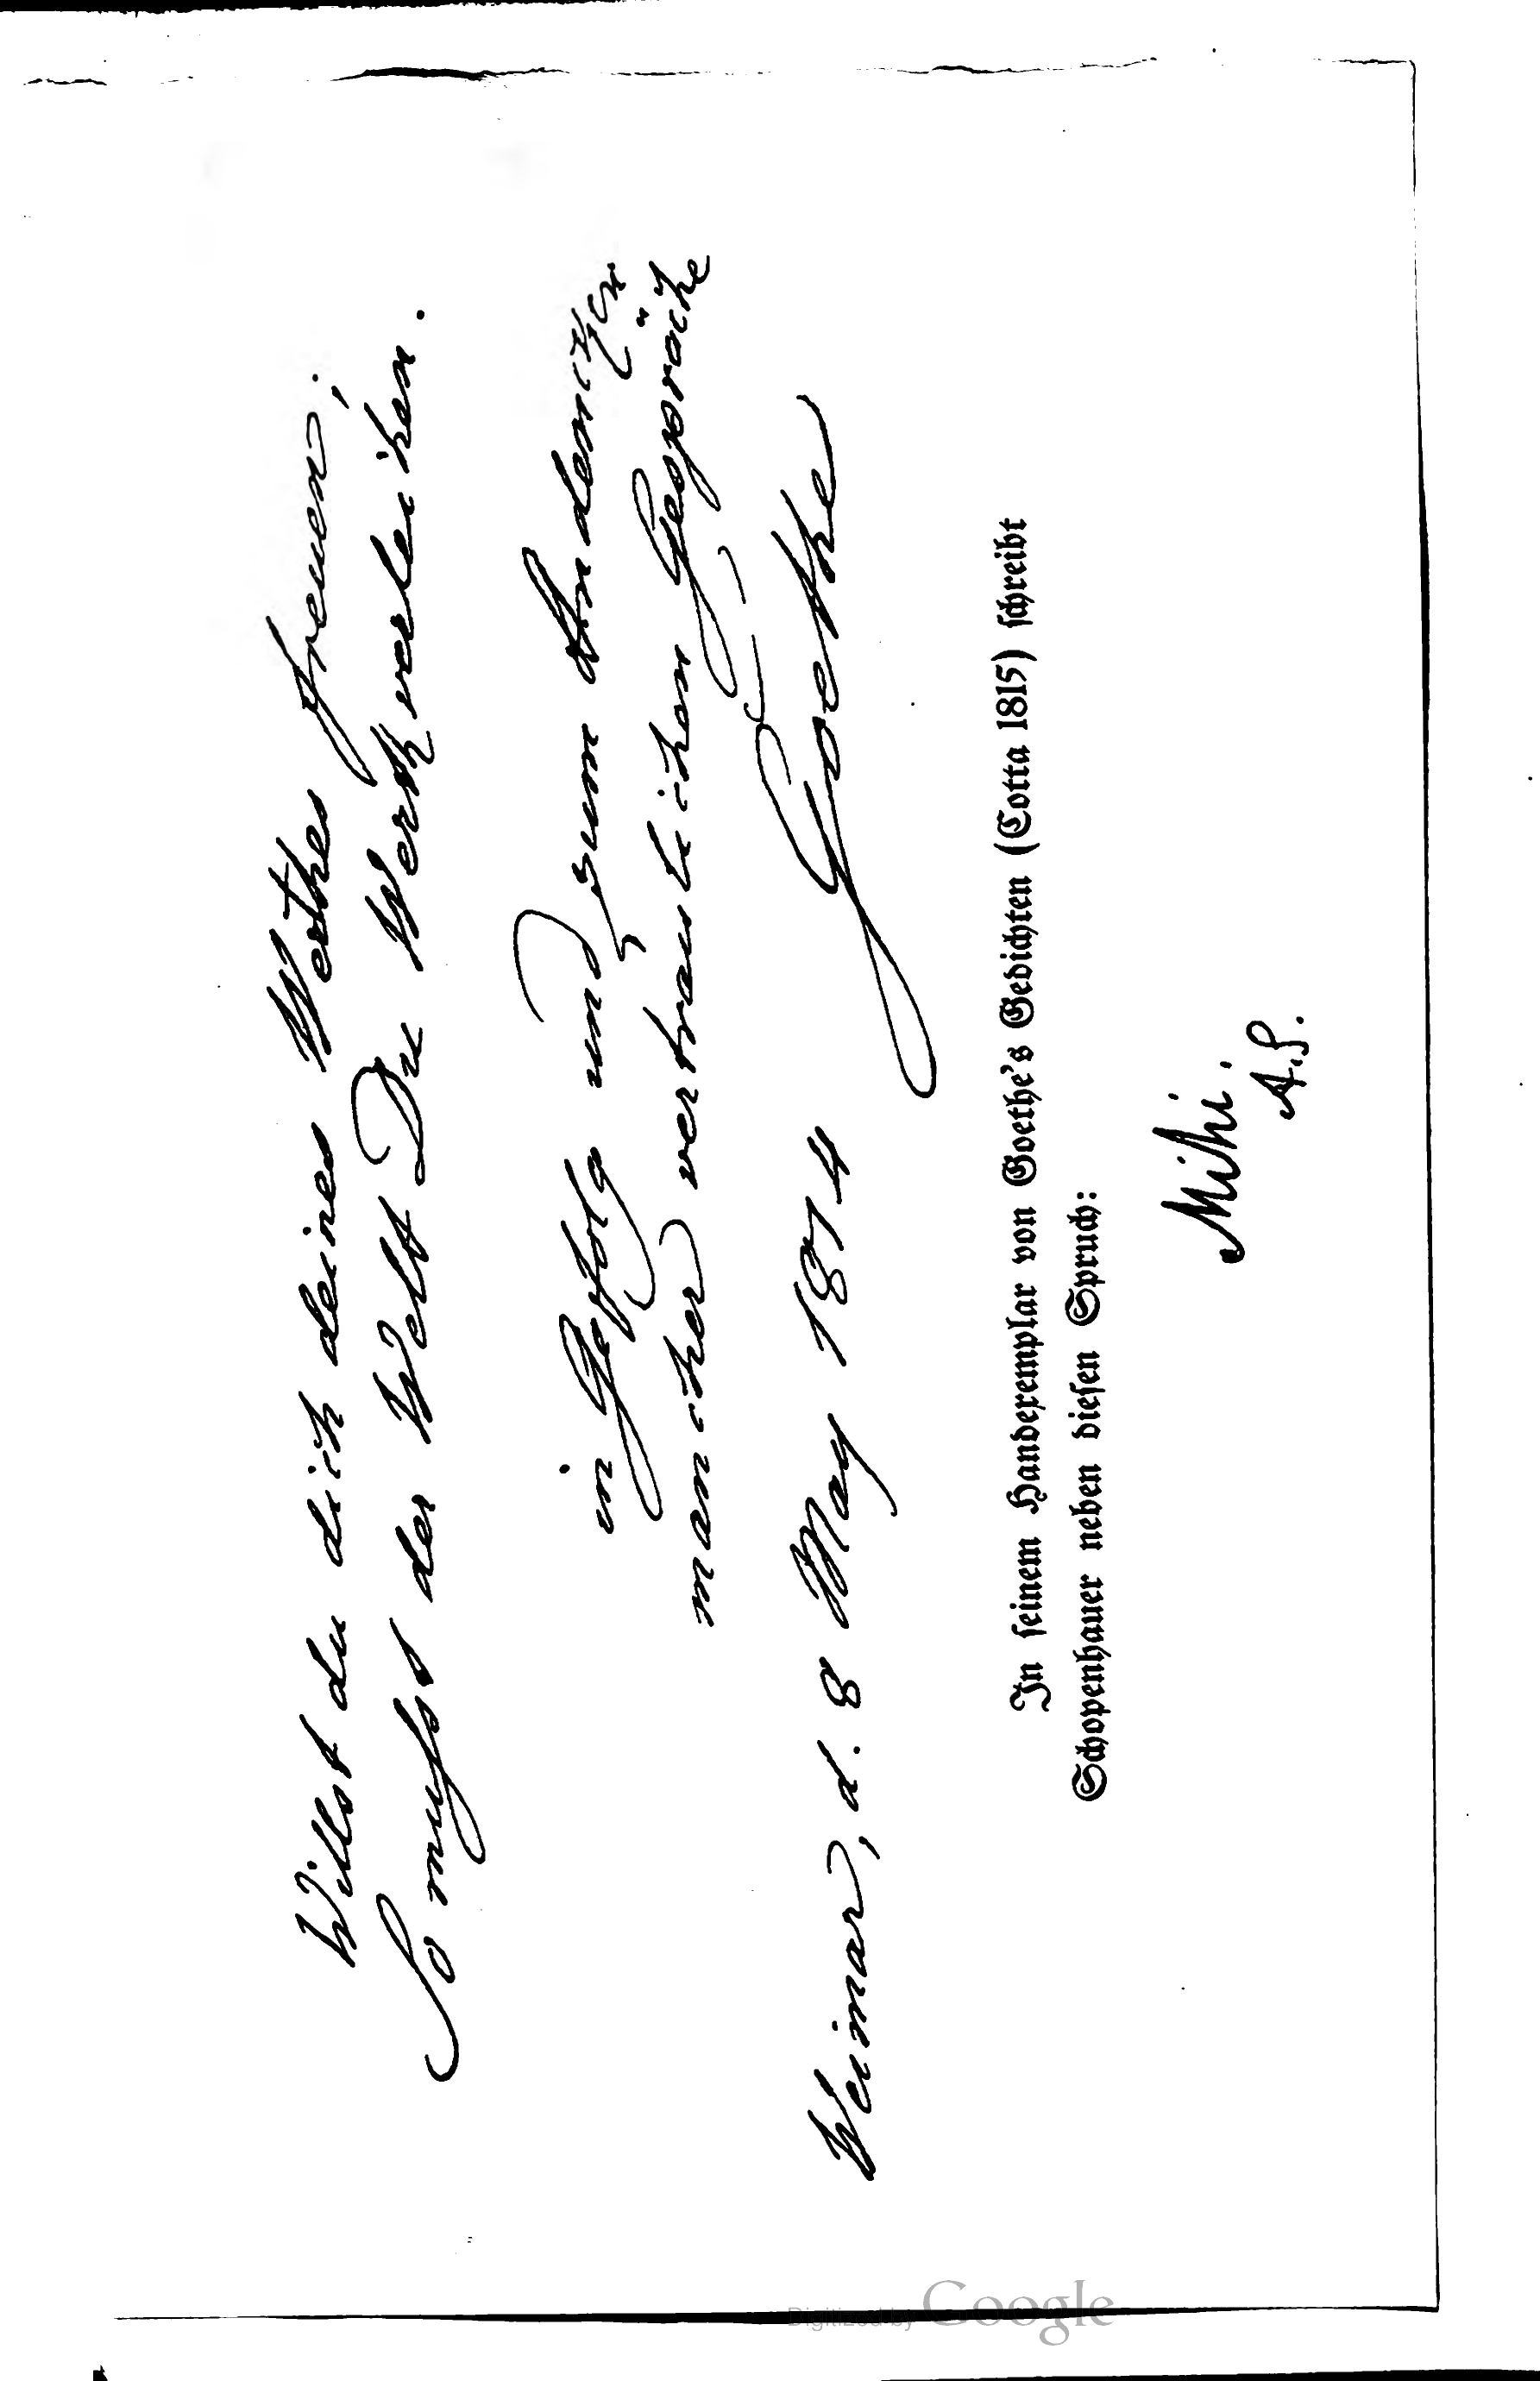 Willst du dich deines Werthes freuen;
So mußt der Welt Du Werth verleihen.
in Gefolg und zum Andencken
mancher vertraulichen Gespräche
Weimar, d. 8 May 1814
Goethe
In ſeinem Handexemplar von Goethe's Gedichten (Cotta 1815) ſchreibt
Schopenhauer neben dieſen Spruch:
Mihi.
A.S.
Digitized by Google